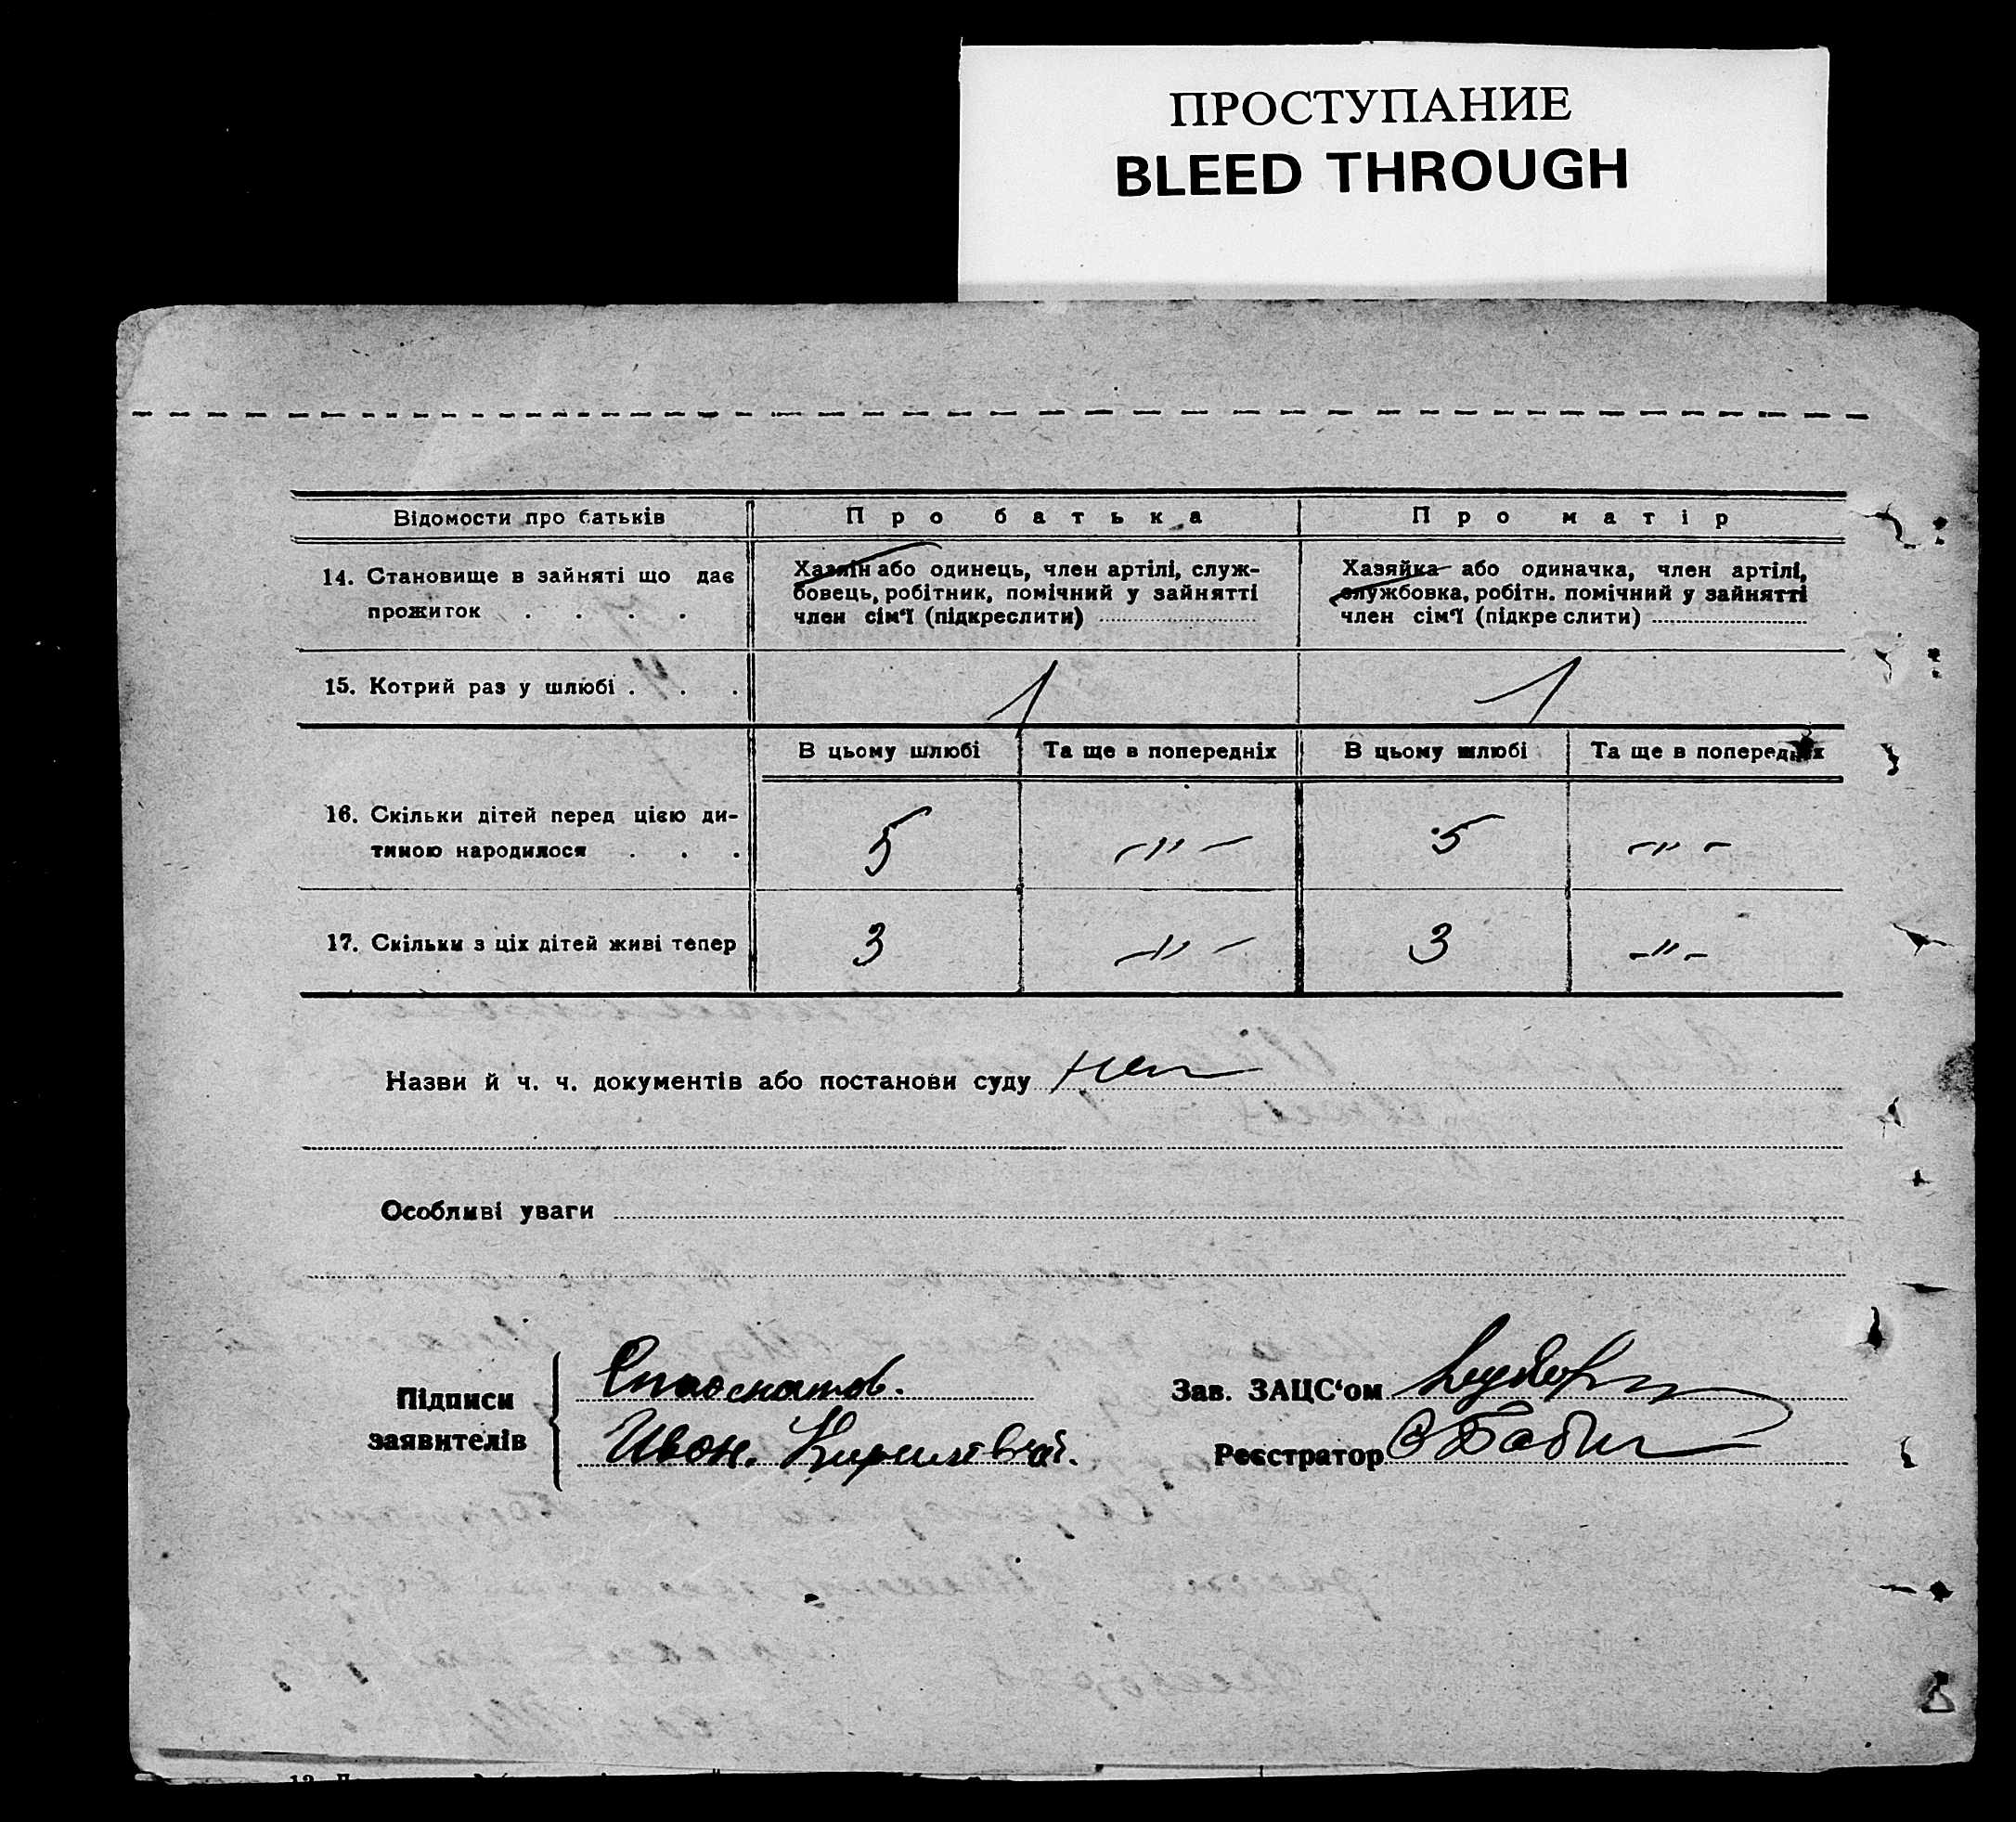 ПРОСТУПАНИЕ
BLEED THROUGH
Відомости про батьків
Про батька
Про матір
14. Становище в зайняті що дає
прожиток . . . .
Хазяїн або одинець, член артілі, служ-
бовець, робітник, помічний у зайнятті
член сім'ї (підкреслити)
Хазяйка або одиначка, член артілі,
службовка, робітн. помічний у зайнятті
член сім'ї (підкреслити)
15. Котрий раз у шлюбі . . .
1
1
В цьому шлюбі
Та ще в попередніх
В цьому шлюбі
Та ще в попередніх
16. Скільки дітей перед цією ди-
тиною народилося . . .
5
-"-
5
-"-
17. Скільки з ціх дітей живі тепер
3
-"-
3
-"-
Назви й ч. ч. документів або постанови суду
Особливі уваги
Підписи
заявителів
Зав. ЗАЦС'ом
Реєстратор